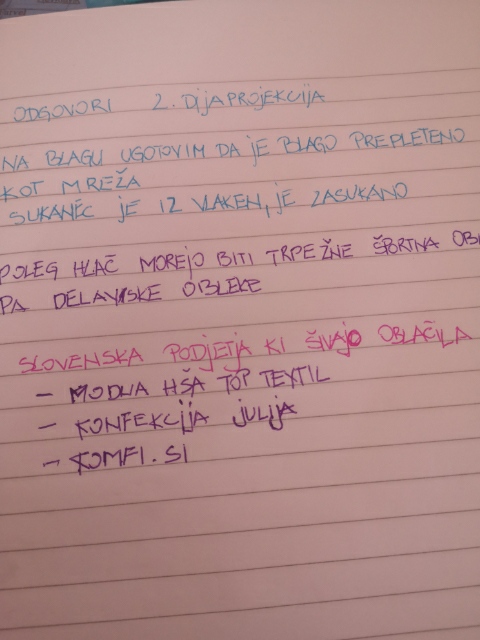 ODGOVORI 2. DIJAPROJEKCIJA
NA BLAGU UGOTOVIM DA JE BLAGO PREPLETENO
KOT MREŽA
SUKANEC JE IZ VLAKEN, JE ZASUKANO
POLEG HLAČ MOREJO BITI TRPEŽNE ŠPORTNA
PA DELAVSKE OBLEKE
SLOVENSKA PODJETJA KI ŠIVAJO OBLAČILA
- MODNA HŠA TOP TEXTIL
- KONFEKCIJA JULIJA
- KOMFI.SI